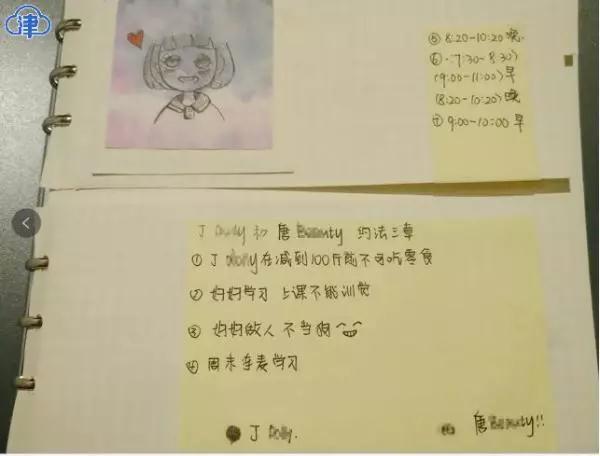 津
⑤ 8:20-10:20 晚.
⑥ (7:30-8:30)
(9:00-11:00) 早
(8:20-10:20) 晚
⑦ 9:00-10:00 早
J Dolly 和 唐Beauty 约法三章
① J dolly在减到100斤前不可吃零食
② 好好学习 上课不能训觉
③ 好好做人 不当狗
④ 周末连麦学习
J Dolly. 唐Beauty!!